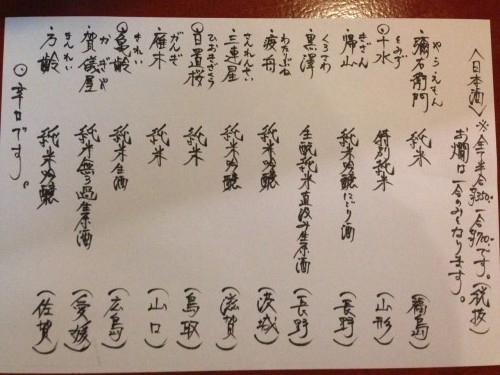 〈日本酒〉※全て半合350-、一合700-です。(税抜)
お燗は一合のみとなります。
彌右衛門 やうえもん 純米 (福島)
◎十水 とみず 特別純米 (山形)
帰山 きざん 純米吟醸にごり酒 (長野)
黒澤 くろさわ 生酛純米直汲み生原酒 (長野)
渡舟 わたりぶね 純米吟醸 (茨城)
三連星 さんれんせい 純米吟醸 (滋賀)
◎日置桜 ひおきざくら 純米 (鳥取)
雁木 がんぎ 純米 (山口)
◎亀齢 きれい 純米生酒 (広島)
賀儀屋 かぎや 純米無ろ過生原酒 (愛媛)
万齢 まんれい 純米吟醸 (佐賀)
◎辛口です。